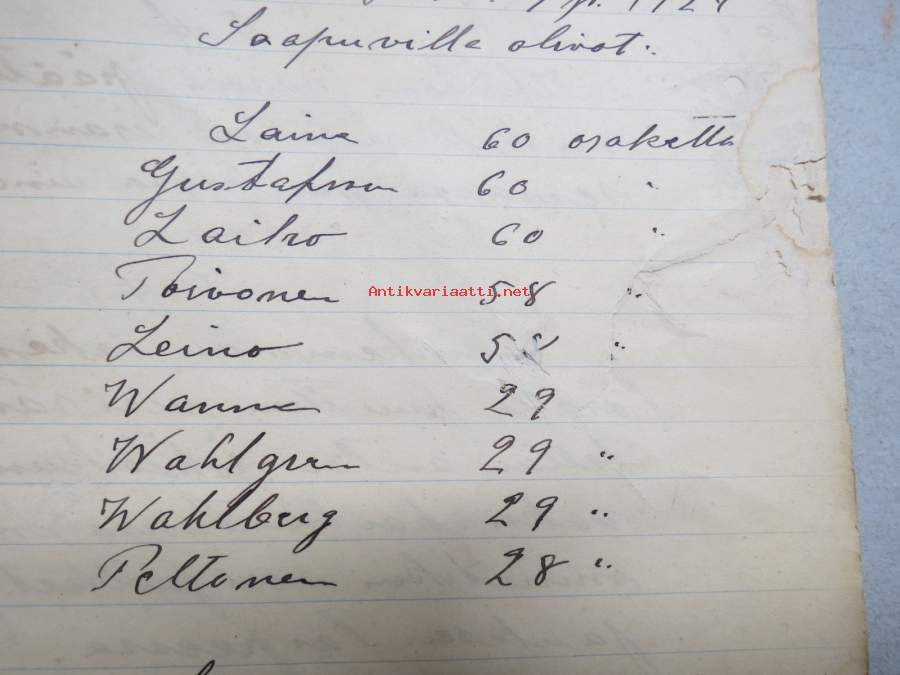 Saapuvilla olivat:
Laine 60 osaketta
Gustafsson 60 "
Laiho 60 "
Toivonen 58 "
Antikvariaatti.net
Leino 58 "
Wanne 29
Wahlgren 29 "
Wahlberg 29 "
Peltonen 28 "